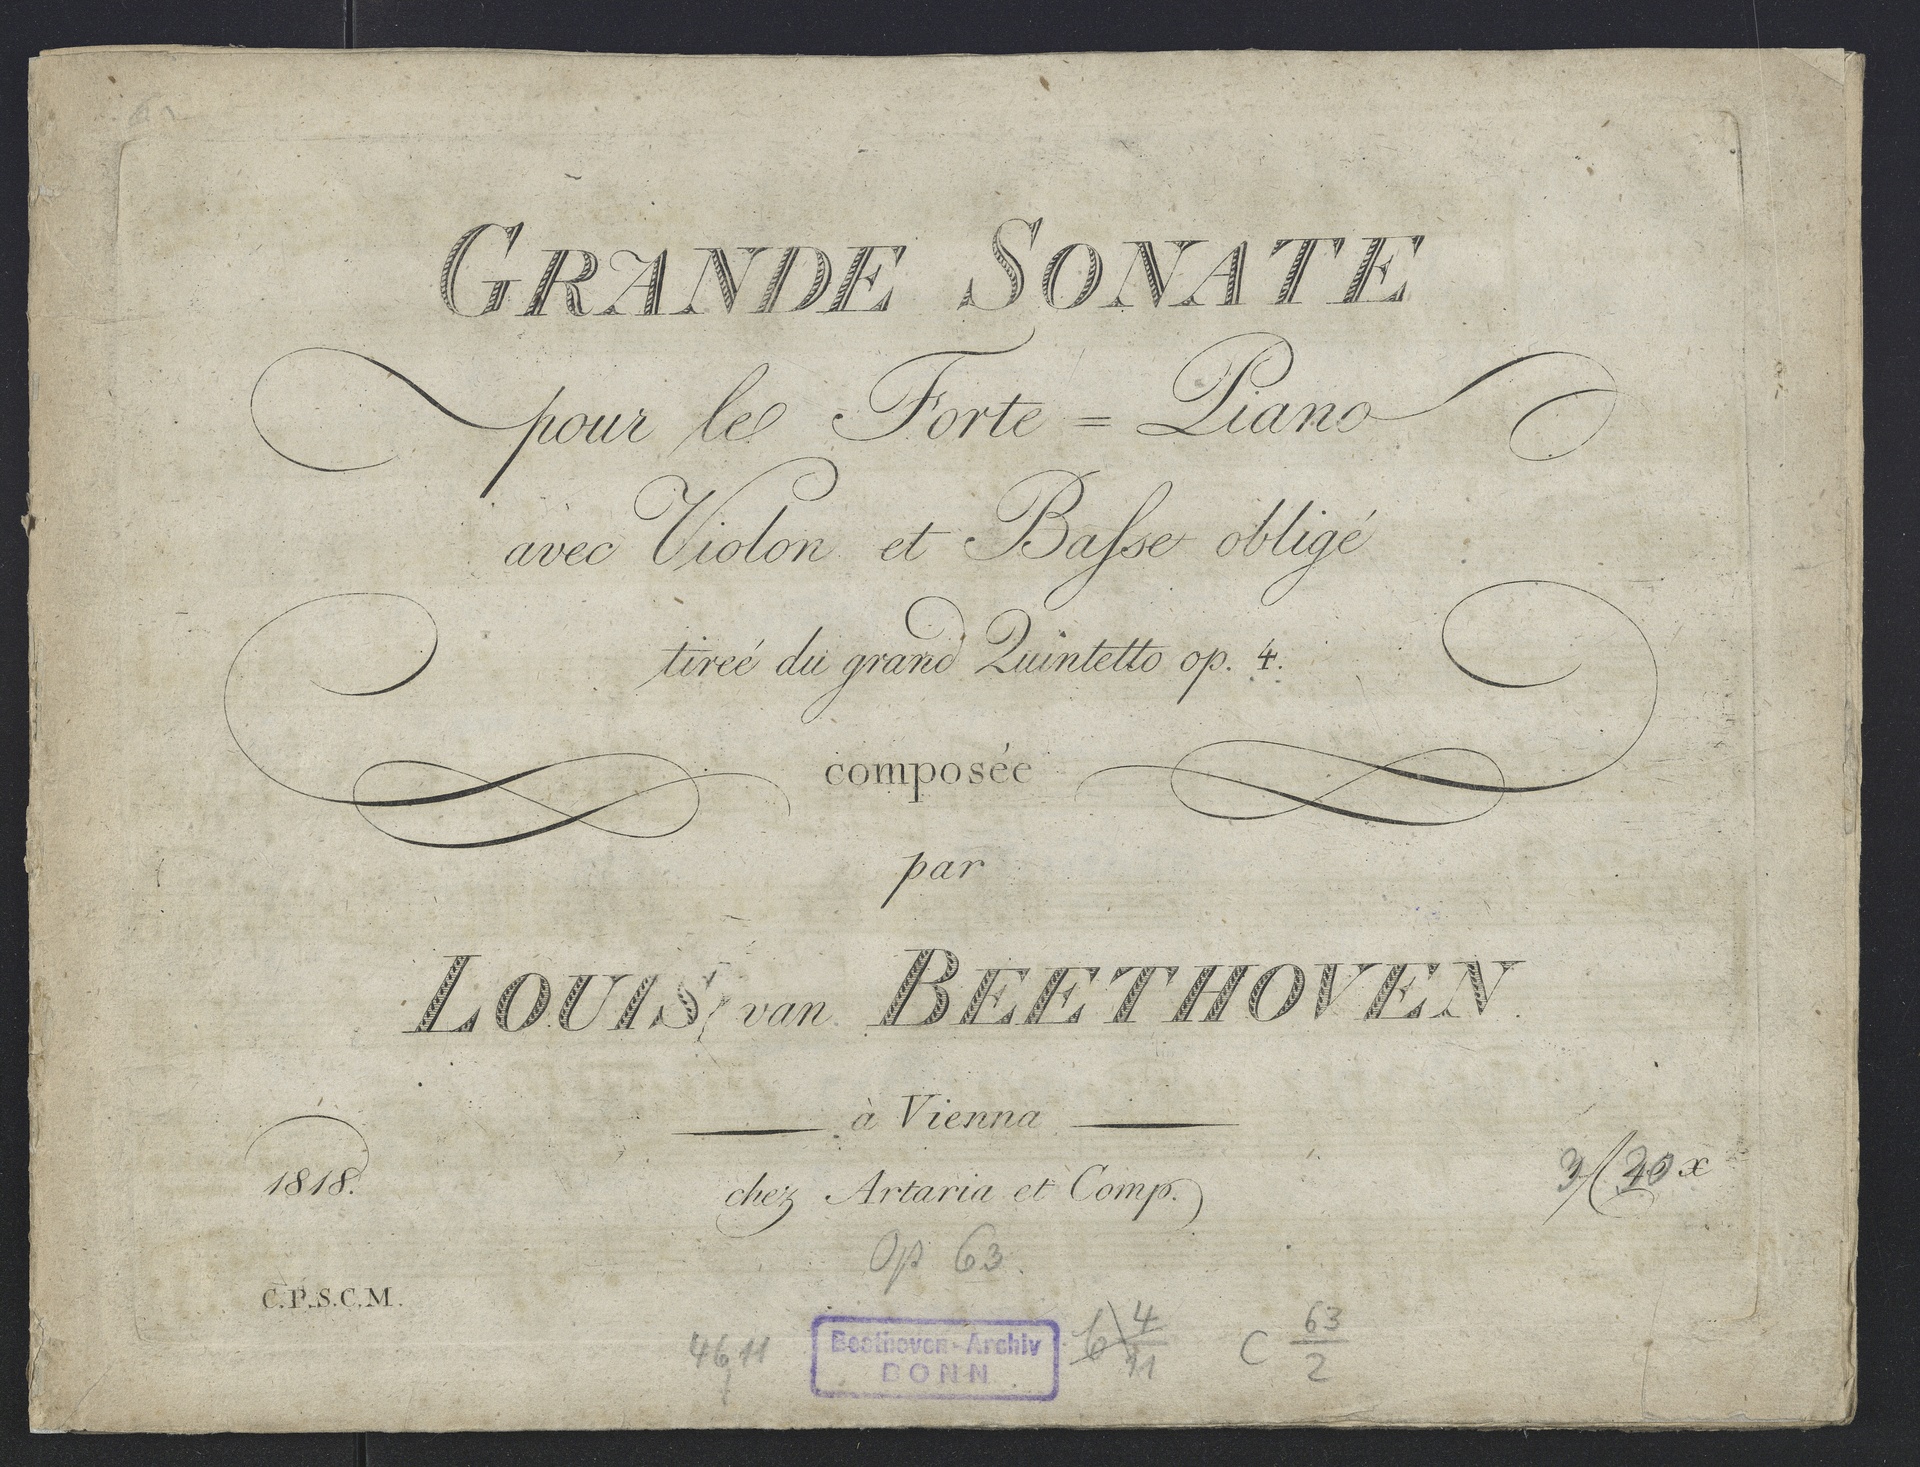 GRANDE SONATE
pour le Forte = Piano
avec Violon et Baſse obligé
tireé du grand Quintetto op. 4.
composée
par
LOUIS van BEETHOVEN.
à Vienna
1818.
chez Artaria et Comp.
Op 63.
C.P.S.C.M.
Beethoven-Archiv
BONN
C 63
2